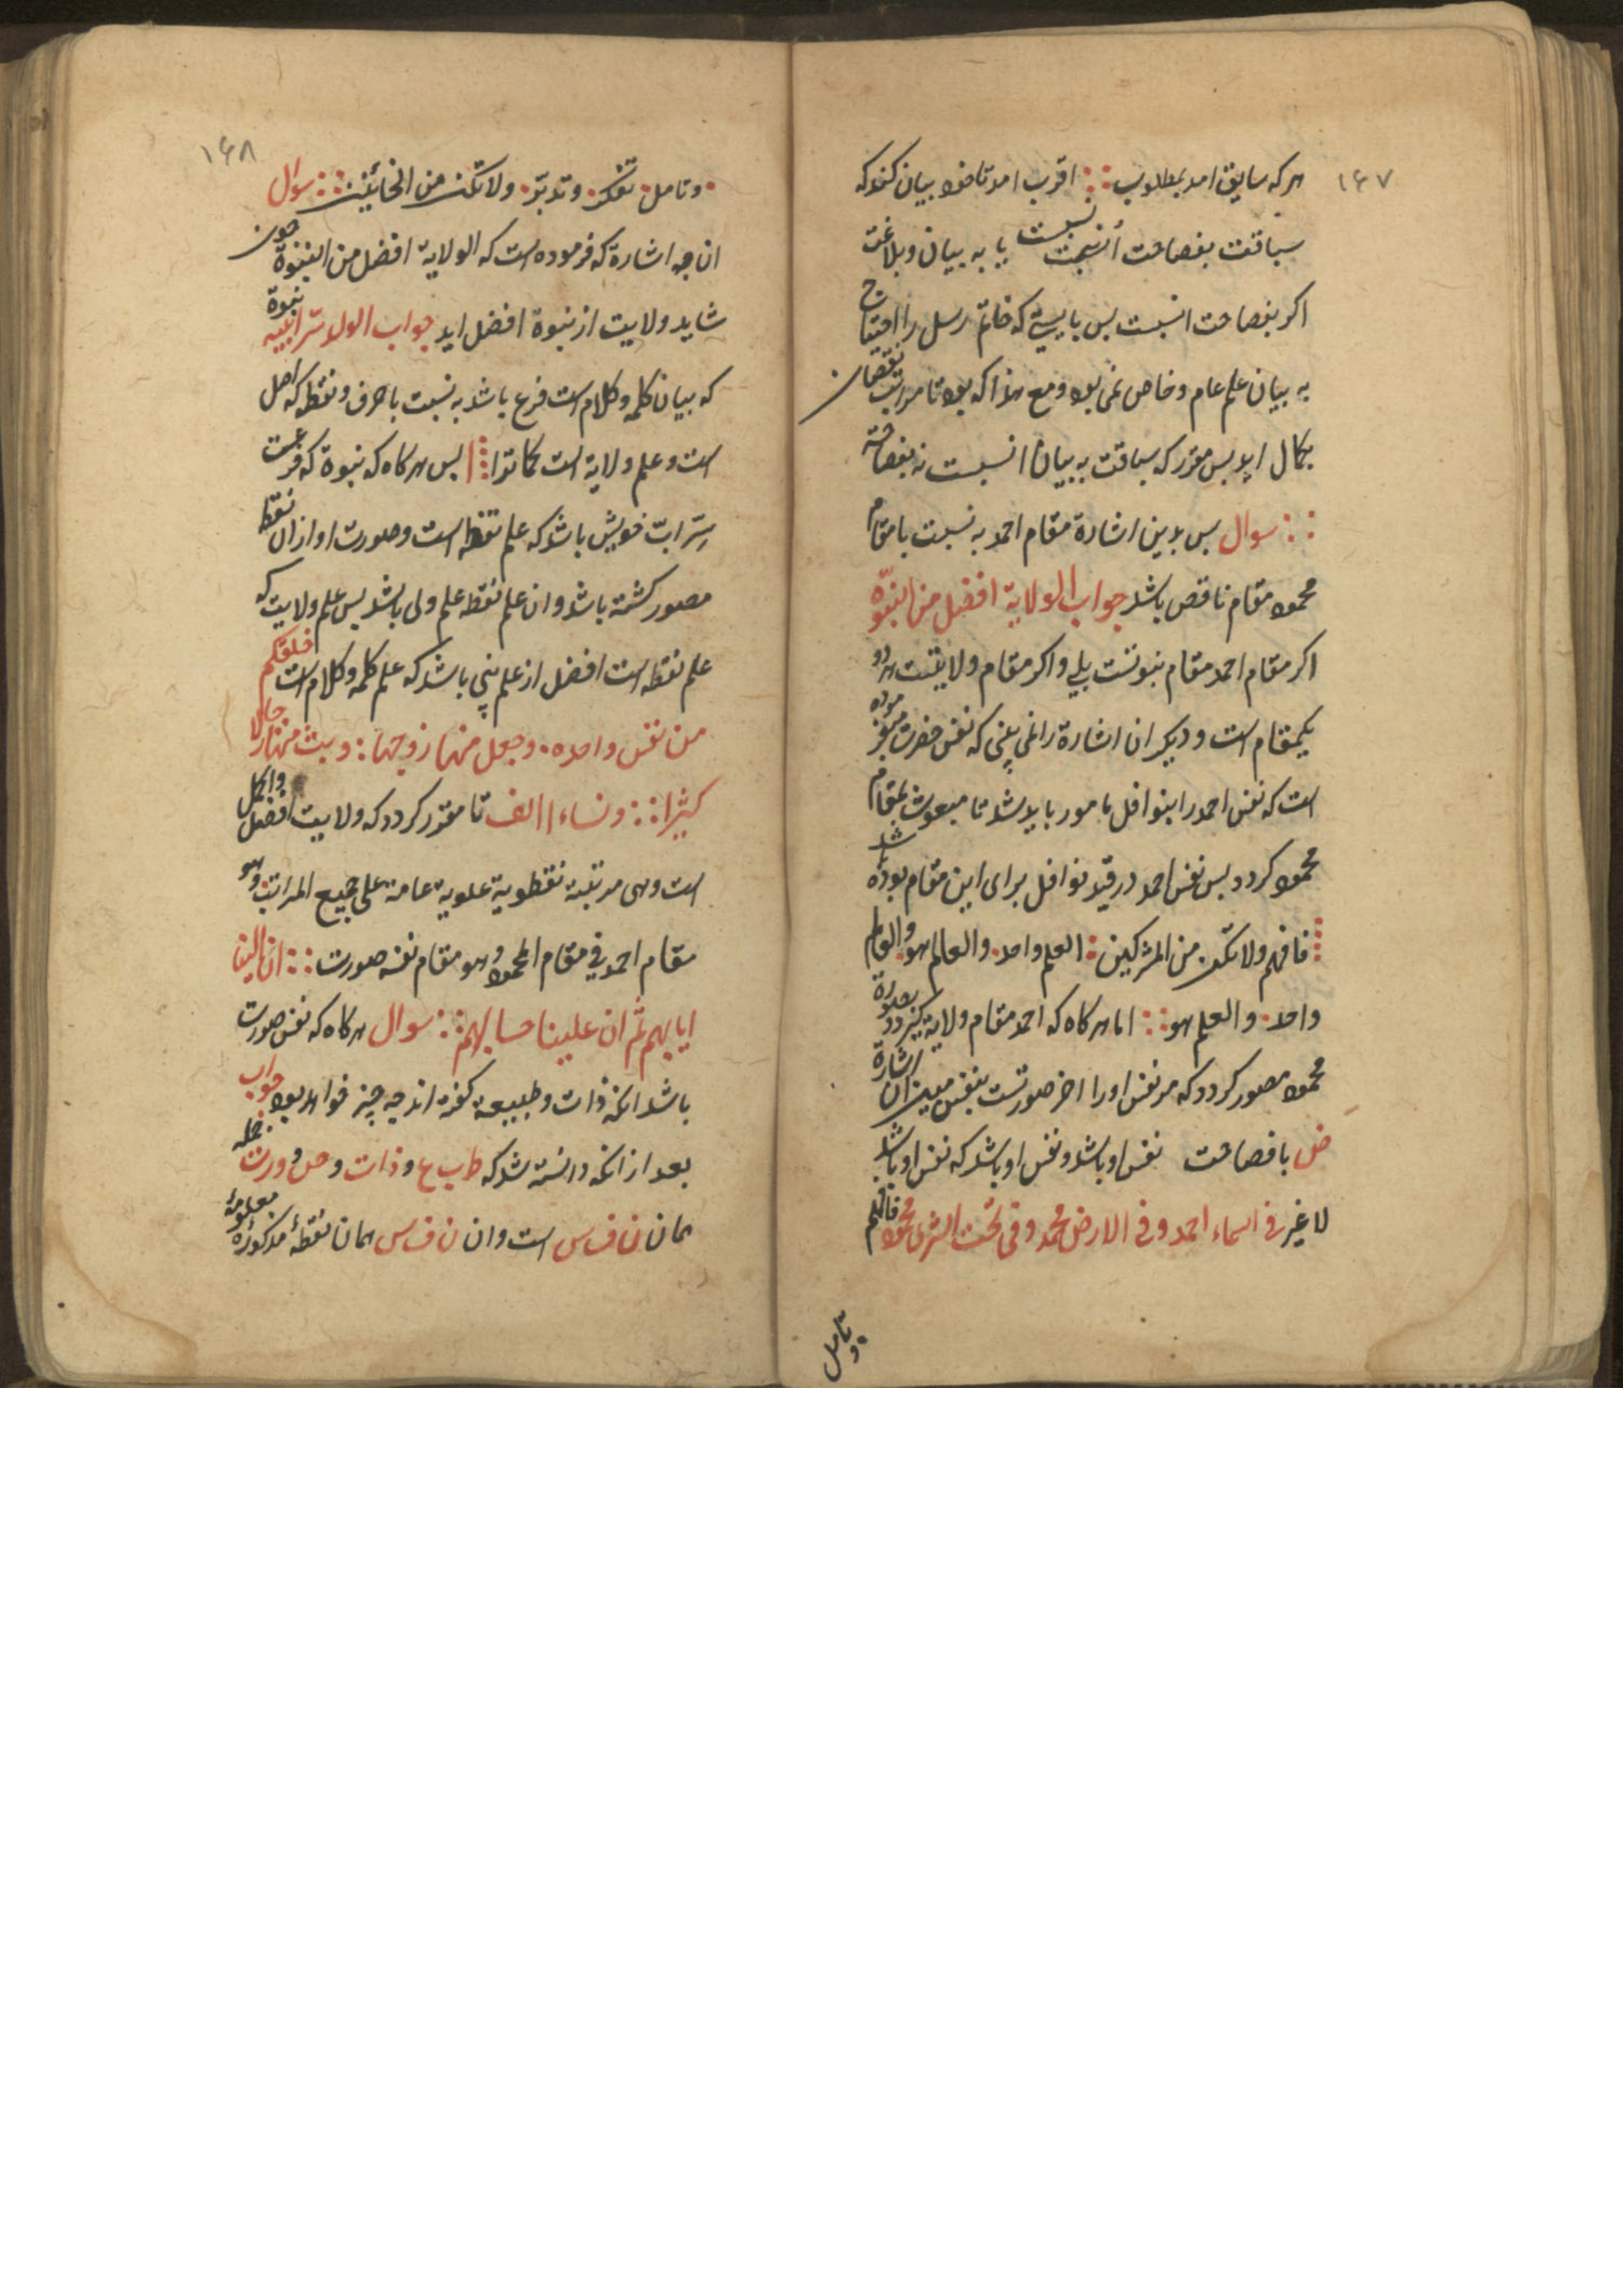 ۱۶۷
هرکه سابق امد بمطلوب :: اقرب امد تا خود بیان کند که
سباقت بفصاحت أنسبت نسبت یا به بیان وبلاغت
اکر بفصاحت انسبت بس بایستی که خاتم رسل را احتیاج
به بیان علم عام وخاص نمی بود ومع هذا که بود تا مراتب نقصان
بکمال اید بس مقرر که سباقت به بیان انسبت نه بفصاحة
:: سوال بس بدین اشارة مقام احمد به نسبت با مقام
محمود مقام ناقص باشد جواب الولایة افضل من النبوّة
اکر مقام احمد مقام نبوتست بلی واکر مقام ولایتست هر دو
یکمقام است ودیکر ان اشارة را نمی بینی که نفس حضرت
است که نفس احمد را بنوافل مامور باید شد تا مبعوث بمقام
محمود کردد بس نفس احمد در قید نوافل برای این مقام بوده باشد
فافهم ولا تکن من المشرکین : العلم واحد . والعالم هو . والعالم
واحد . والعلم هو :: اما هرکاه که احمد مقام ولایة کیرد وبصورة
محمود مصور کردد که مر نفس اورا اخر صورتست بنفس مبین ان اشارة
ض با فصاحت نفس او باشد ونفس او باشد که نفس او باشد
لا غیر فی السماء احمد وفی الارض محمد وفی تحت الثری محمود فافهم
وتامل
۱۶۸
. وتامل . تفکر . وتدبّر . ولا تکن من الخائنین :: سوال
ان چه اشارة که فرموده است که الولایة افضل من النبوة چون
شاید ولایت از نبوة افضل اید جواب الولد سّر ابیه نبوة
که بیان کلمه وکلام است فرع باشد به نسبت با حرف ونقطه که اصل
است وعلم ولایة است کماتوا ا بس هرکاه که نبوة که فرعست
سِرّ ابّ خویش باشد که علم نقطه است وصورت او از ان نقطه
مصور کشته باشد وان علم نقطه علم ولی باشد بس علم ولایت که
علم نقطه است افضل از علم نبی باشد که علم کلمه وکلام است خلقکم
من نفس واحده . وجعل منها زوجها : وبث منهما رجالا
کثیرا :: ونساء ا الف تا مقرر کردد که ولایت افضل واکمل
است وهی مرتبة نقطویة علویة عامة علی جمیع المراتب وهو
مقام احمد فی مقام المحمود وهو مقام نفسه صورت :: ان الینا
ایابهم ثم ان علینا حسابهم :: سوال هرکاه که نفس صورت
باشد انکه ذات وطبیعة کفته اند چه چیز خواهد بود جواب
بعد از انکه دانسته شد که ط ب ی ع و ذات وص و ورت جمله
همان ن ف س است وان ن ف س همان نقطهٔ مذکورهٔ معلومهٔ